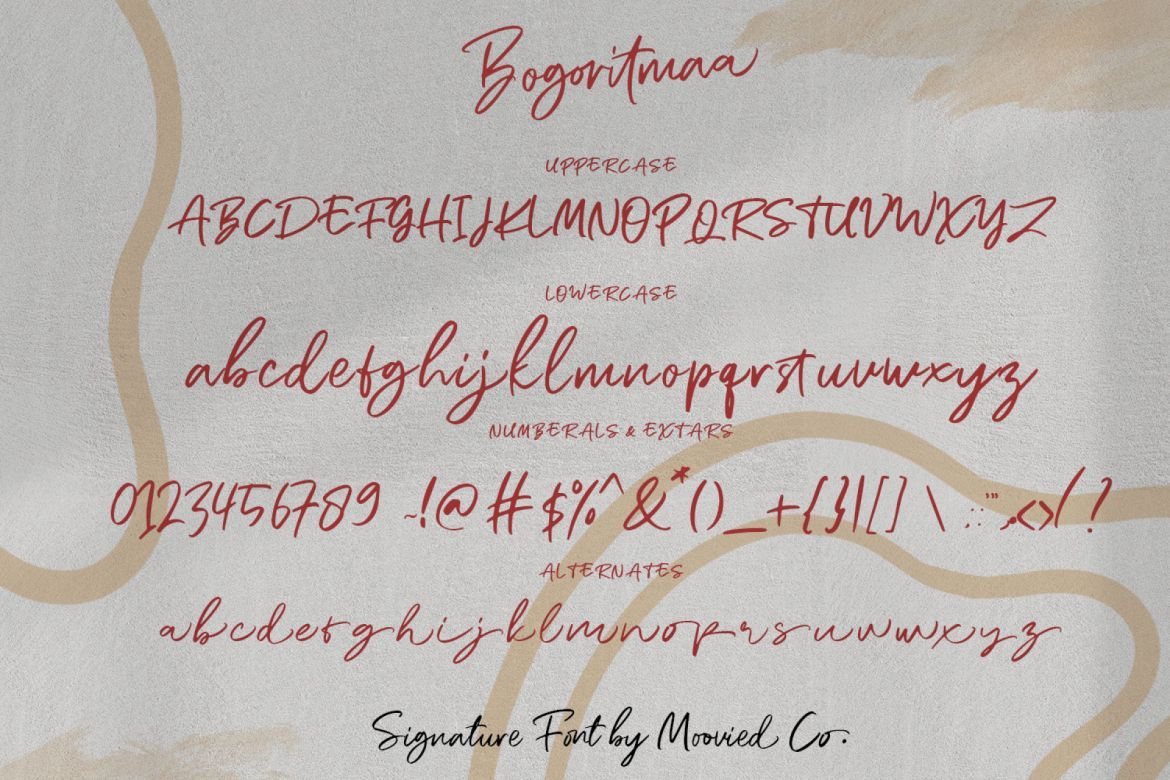 Bogoritmaa
UPPERCASE
ABCDEFGHIJKLMNOPQRSTUVWXYZ
LOWERCASE
abcdefghijklmnopqrstuvwxyz
NUMBERALS & EXTARS
0123456789 ~!@#$%^&*()_+{}|[]\:;'",.<>/?
ALTERNATES
abcdefghijklmnoprsuvwxyz
Signature Font by Moovied Co.